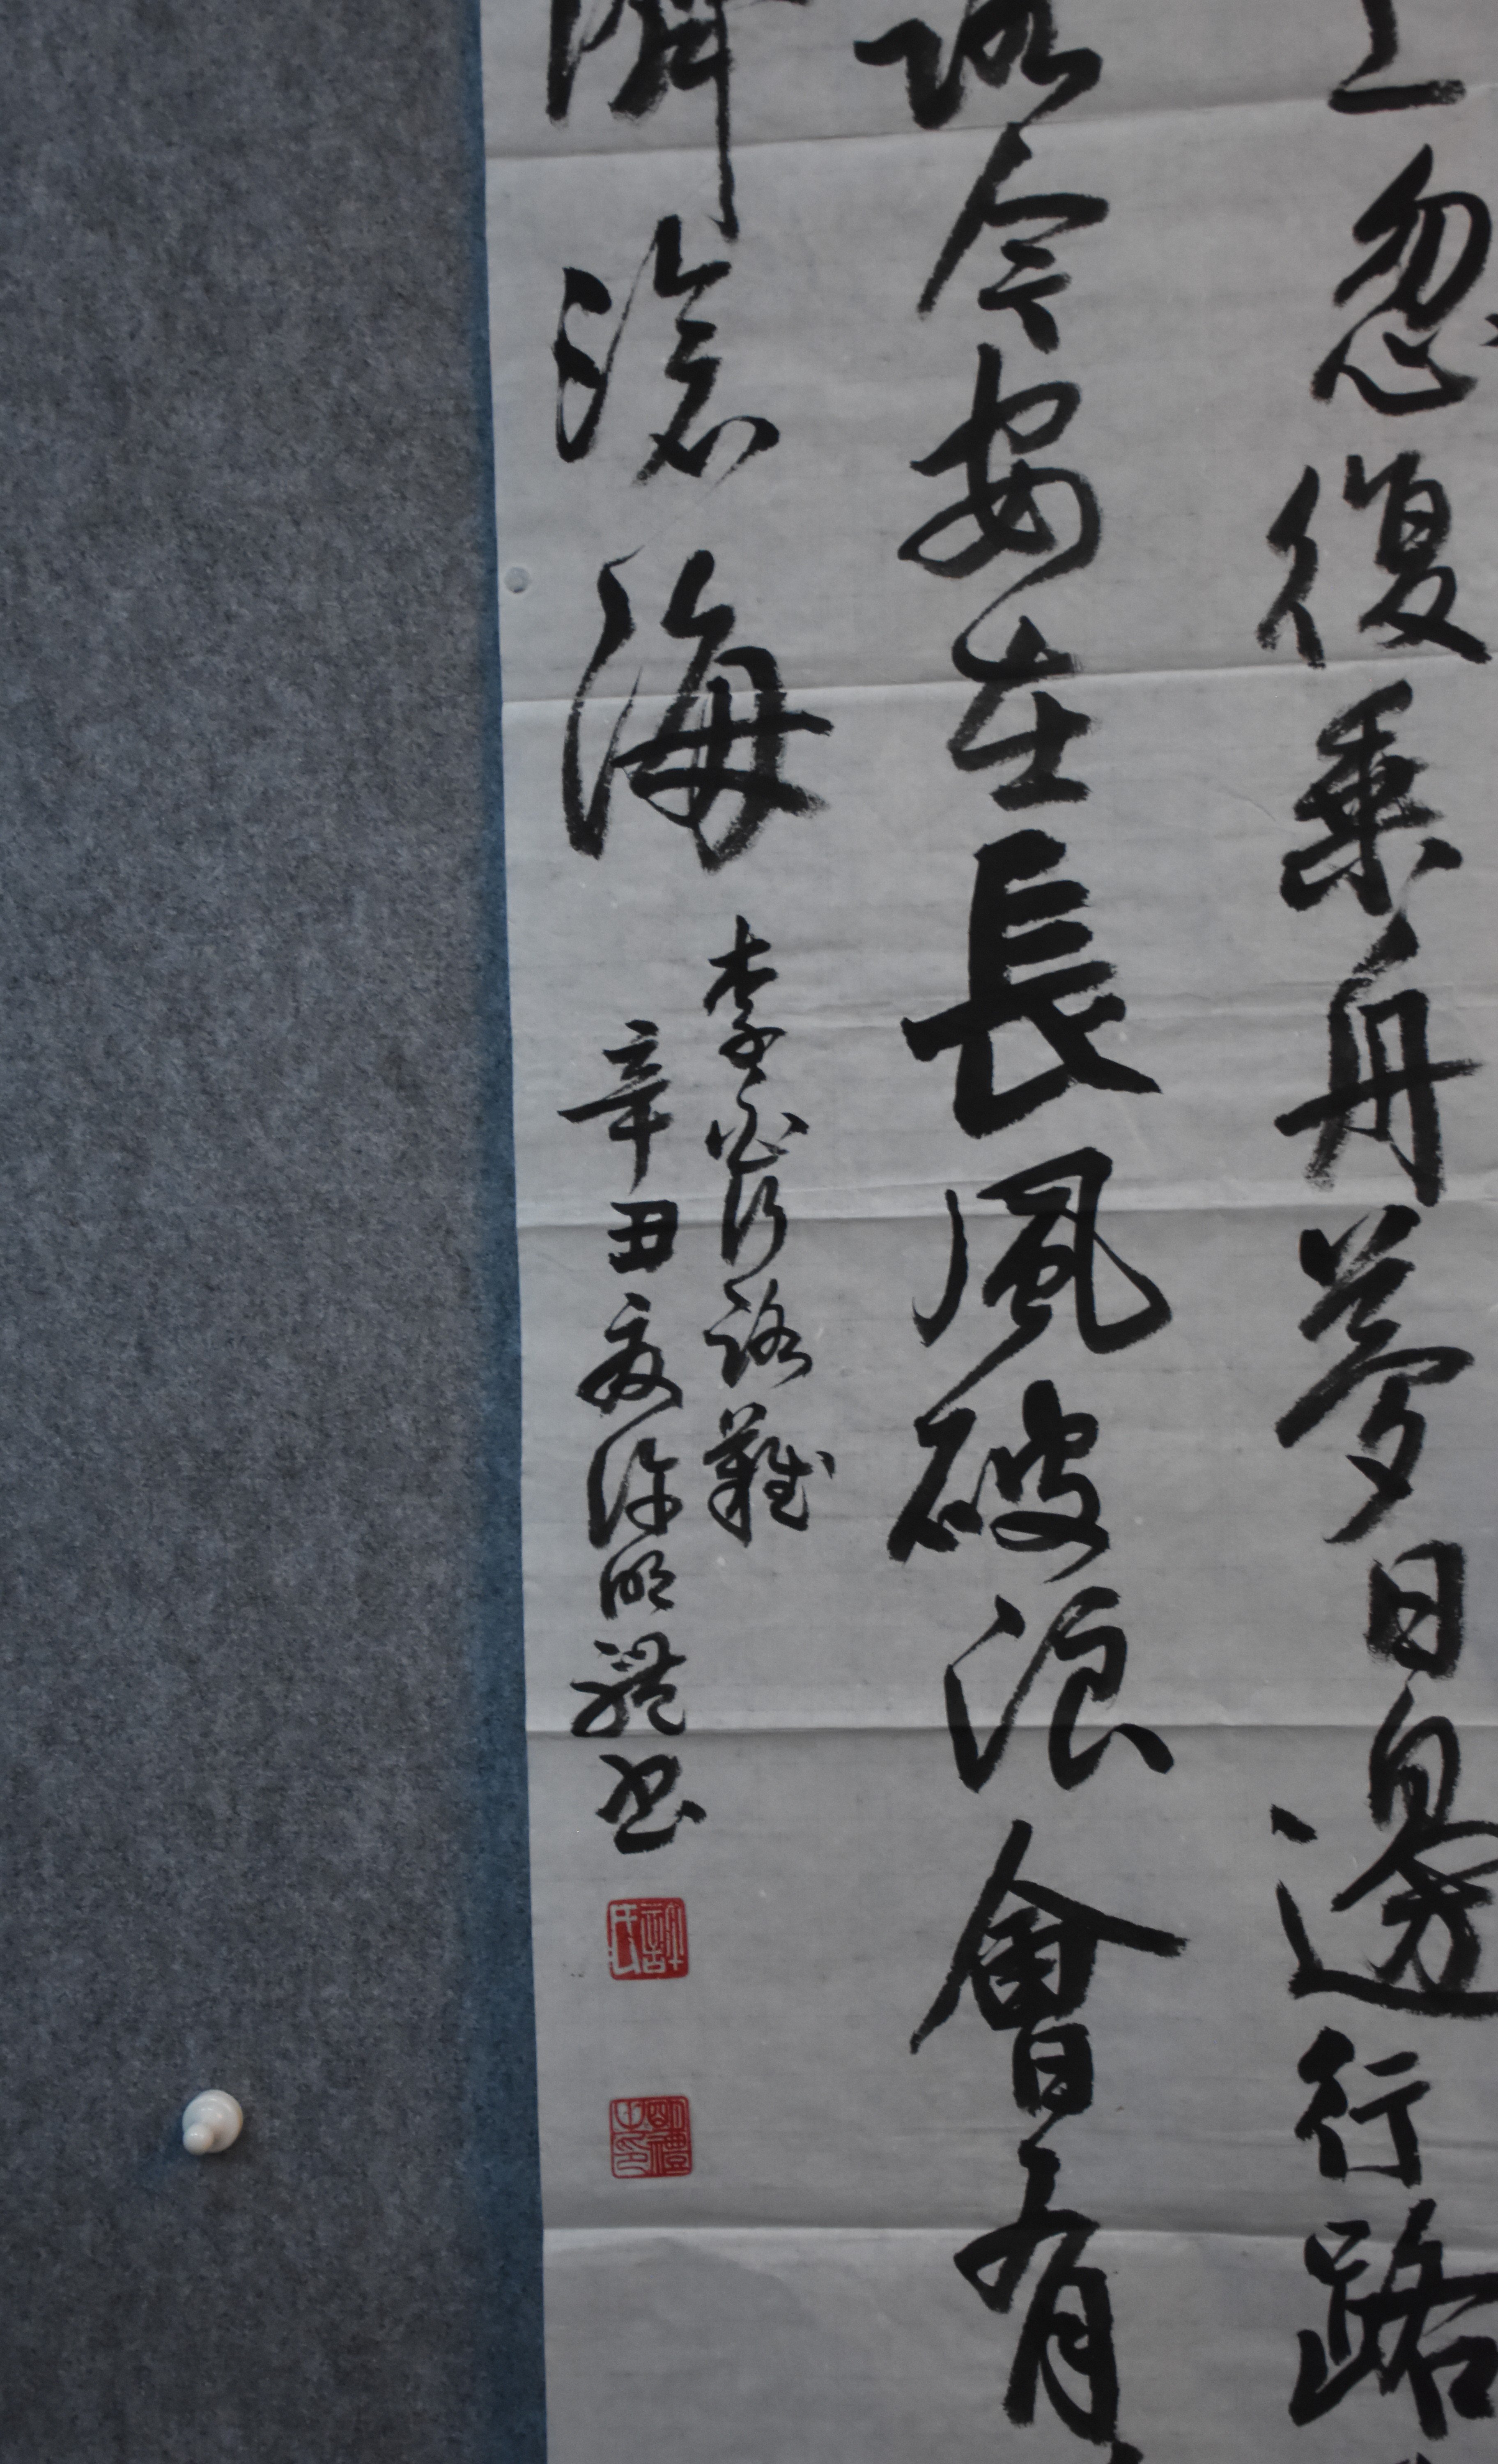 上忽復乘舟夢日邊行路
路今安在長風破浪會有
濟滄海
李白行路難
辛丑夏許明禮書
許氏